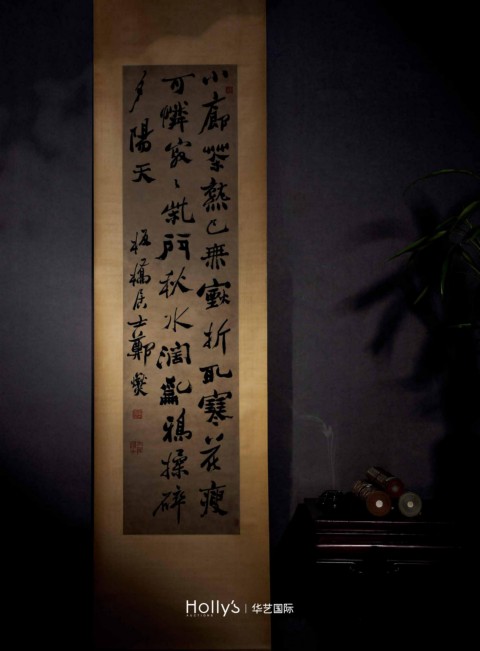 小廊茶熟已無煙折取寒花瘦
可憐寂〻柴門秋水闊亂鴉揉碎
夕陽天
板橋居士鄭燮
Holly's
AUCTIONS
华艺国际